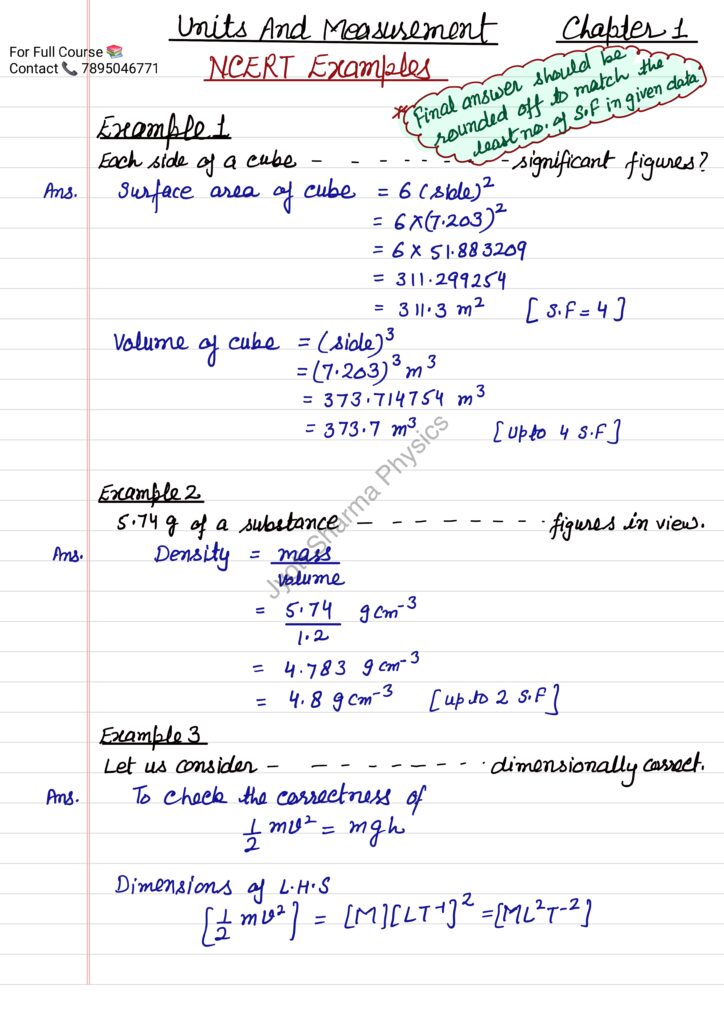 Units And Measurement Chapter 1
For Full Course 📚
Contact 📞 7895046771
NCERT Examples
* Final answer should be
rounded off to match the
least no. of S.F in given data.
Example 1
Each side of a cube - - - - - - - - - significant figures?
Ans. Surface area of cube = 6 (side)²
= 6×(7.203)²
= 6 × 51.883209
= 311.299254
= 311.3 m² [S.F = 4]
Volume of cube = (side)³
= (7.203)³ m³
= 373.714754 m³
= 373.7 m³ [upto 4 S.F]
Jyoti Sharma Physics
Example 2
5.74 g of a substance - - - - - - - - figures in view.
Ans. Density = mass/volume
= 5.74/1.2 g cm⁻³
= 4.783 g cm⁻³
= 4.8 g cm⁻³ [up to 2 S.F]
Example 3
Let us consider - - - - - - - - dimensionally correct.
Ans. To check the correctness of
1/2 mv² = mgh
Dimensions of L.H.S
[1/2 mv²] = [M][LT⁻¹]² = [ML²T⁻²]